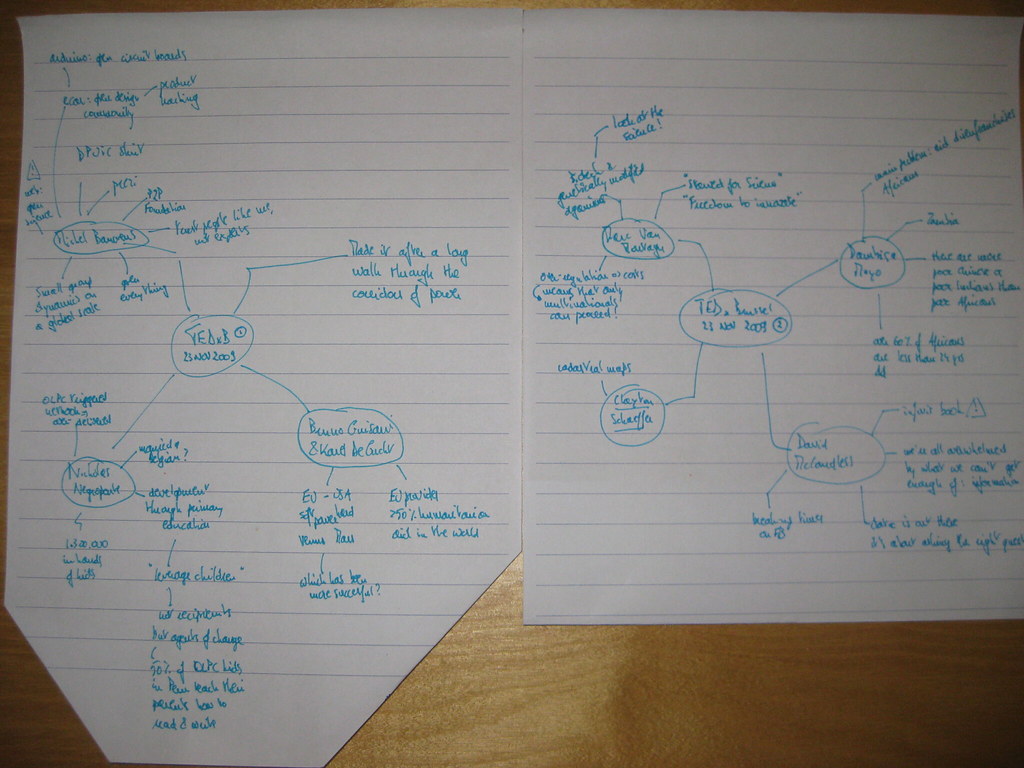 arduino: open circuit boards
ecars - open design
community
product
hacking
shirt
P2P
Foundation
Trust people like me,
not experts
Michel Bauwens
web:
open
science
Small group
dynamics on
a global scale
open
everything
Made it after a long
walk through the
corridors of power
TEDxB ①
23 NOV 2009
OLPC triggered
netbooks
Nicholas
Negroponte
Belgian?
development
through primary
education
1.500.000
in hands
of kids
"leverage children"
not recipients
but agents of change
50% of OLPC kids
in Peru teach their
parents how to
read & write
Bruno Giussani
& Karel De Gucht
EU - USA
soft power hard
Venus Mars
which has been
more successful?
EU provides
>50% humanitarian
aid in the world
Look at the
Science!
genetically modified
organisms
"Stand for Science"
"Freedom to innovate"
Marc Van
Montagu
Over-regulation => costs
means that only
multinationals
can proceed!
TEDx Brussel
23 NOV 2009 ②
cadastral maps
Clayton
Schaeffer
main problem: aid disenfranchises
Africans
Zambia
Dambisa
Moyo
there are more
poor Chinese or
poor Indians than
poor Africans
60% of Africans
are less than 24 yrs
old
David
McCandless
infoviz book
we're all overwhelmed
by what we can't get
enough of: information
breaking times
on FB
data is out there
it's about asking the right